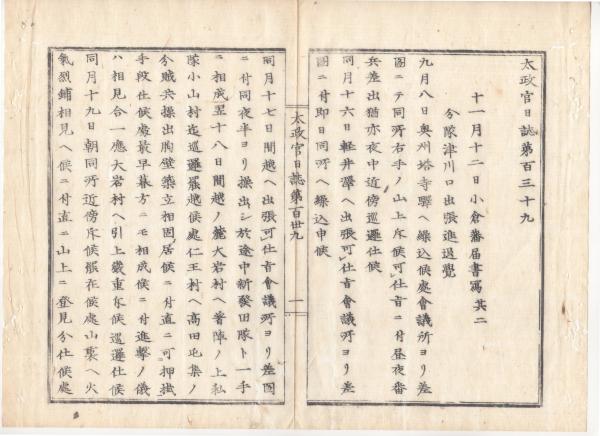 太政官日誌第百三十九
十一月十二日小倉藩届書寫其二
分隊津川口出張進退覺
九月八日奥州塔寺驛ヘ繰込候處會議所ヨリ差
圖ニテ同所右手ノ山上斥候可仕旨ニ付昼夜番
兵差出猶亦夜中近傍巡邏仕候
同月十六日軽井澤ヘ出張可仕旨會議所ヨリ差
圖ニ付即日同所ヘ繰込申候
太政官日誌第百卅九
一
同月十七日間越ヘ出張可仕旨會議所ヨリ差圖
ニ付同夜半ヨリ操出シ於途中新發田隊ト一手
ニ相成翌十八日間越ノ麓大岩村ヘ着陣ノ上私
隊小山村迄巡邏罷越候處仁王村ヘ高田屯集ノ
分賊兵操出胸壁築立相固居候ニ付直ニ可押拔
手段仕候處最早暮方ニモ相成候ニ付進撃ノ儀
ハ相見合一應大岩村ヘ引上嚴重斥候巡邏仕候
同月十九日朝同所近傍斥候罷在候處山裏ヘ火
氣烈鋪相見ヘ候ニ付直ニ山上ニ登見分仕候處